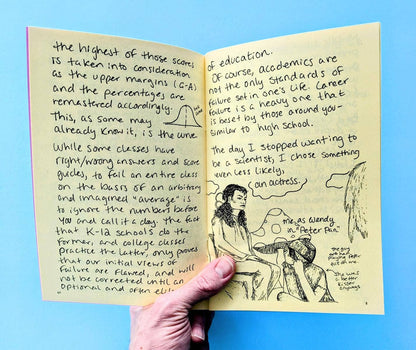 the highest of those scores
is taken into consideration
as the upper margins (G-A)
and the percentages are
remastered accordingly.
This, as some may
already know it, is the curve.
While some classes have
right/wrong answers and score
guides, to fail an entire class
on the basis of an arbitrary
and imagined "average" is
to ignore the numbers before
you and call it a day. The fact
that K-12 schools do the
former, and college classes
practice the latter, only proves
that our initial views of
failure are flawed, and will
not be corrected until an
optional and often
of education.
Of course, academics are
not the only standards of
failure set in one's life. Career
failure is a heavy one that
is beset by those around you—
similar to high school.
The day I stopped wanting to
be a scientist, I chose something
even less likely,
(an actress.
me, as Wendy
in "Peter Pan"
the guy
Pan
out of me.
She was
a better
kisser
anyways